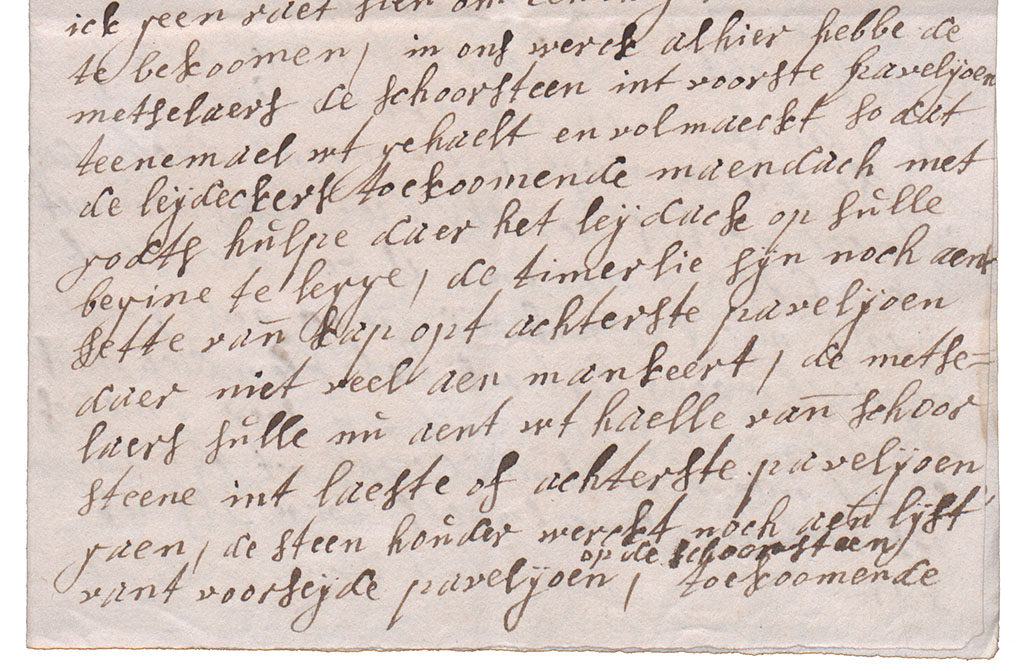 ick geen raet sien om
te bekoomen, in ons werck alhier hebbe de
metselaers de schoorsteen int voorste paveljoen
teenemael wt gehaelt en volmaeckt so dat
de leijdeckers toekoomende maendach met
godts hulpe daer het leijdack op sulle
begine te legge, de timerlie sijn noch aent
sette van kap opt achterste paveljoen
daer niet veel aen mankeert, de metse=
laers sulle nu aent wt haelle van schoor
steene int laeste of achterste paveljoen
gaen, de steen houder werckt noch aen lijst
op de schoorsteen
vant voorseijde paveljoen, toekoomende